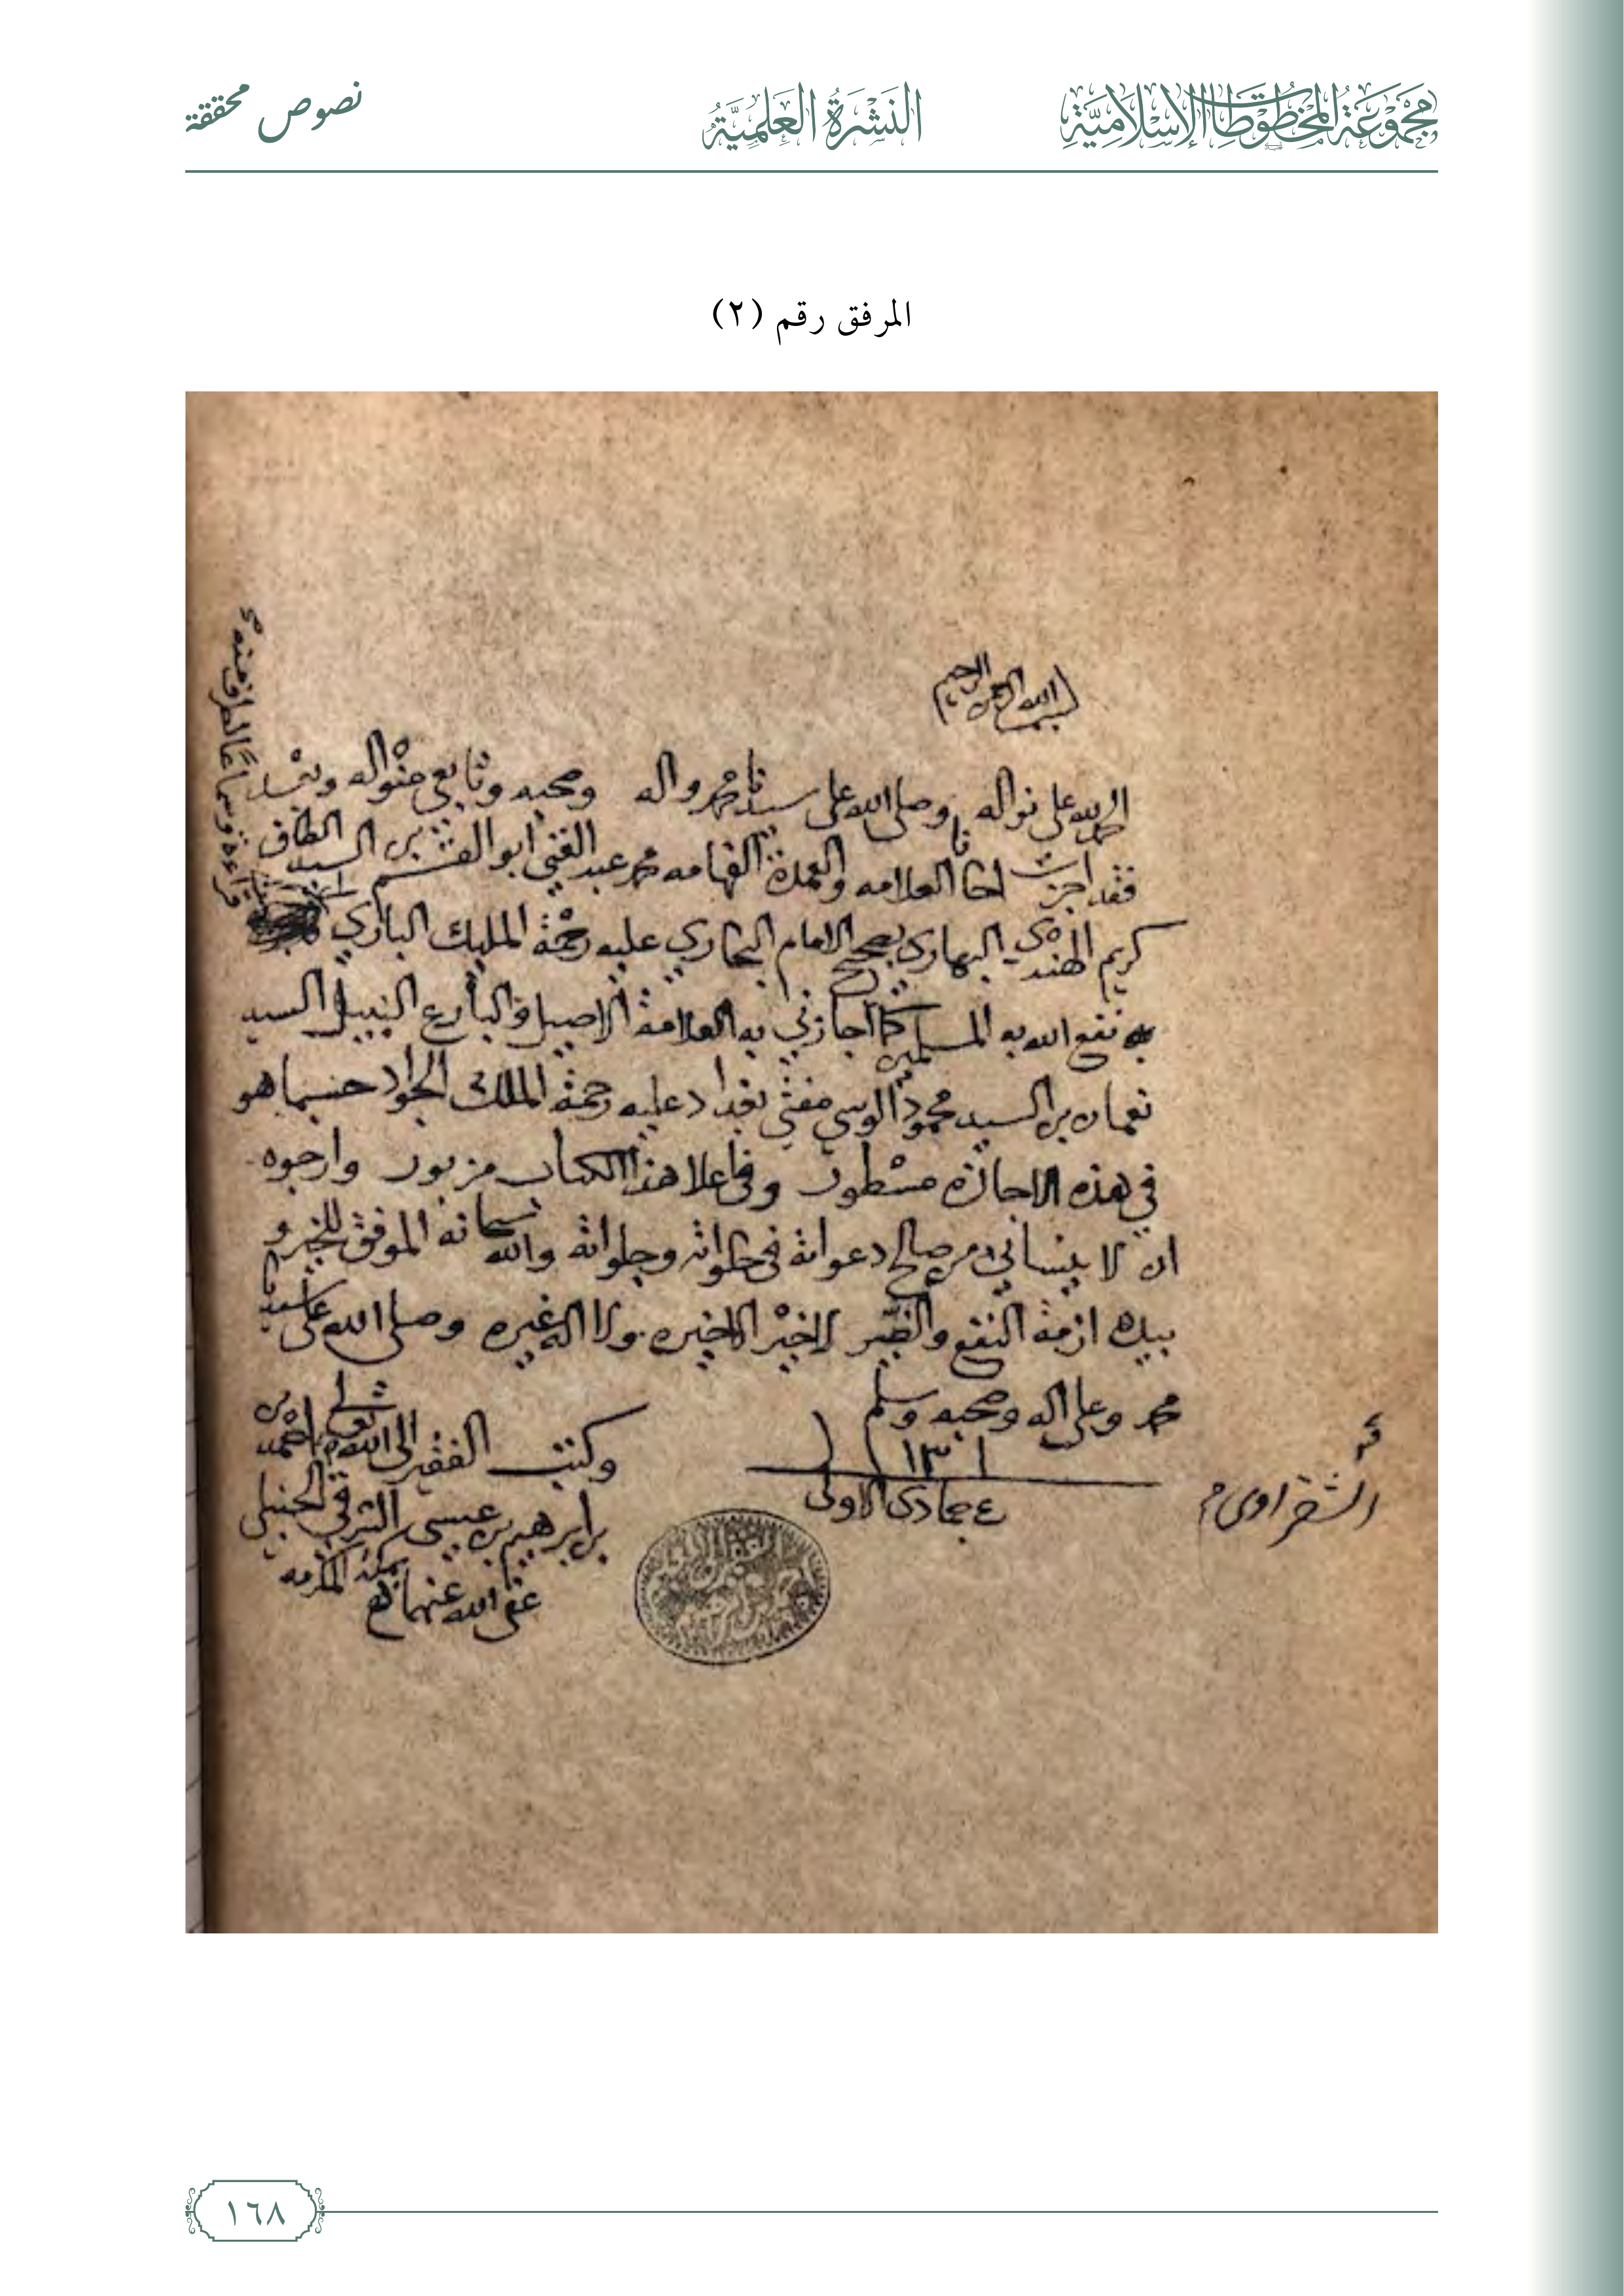 مجموعة المخطوطات الإسلامية
النشرة العلمية
نصوص محققة
المرفق رقم (٢)
بسم الله الرحمن الرحيم
الحمد لله على نواله وصلى الله على سيدنا محمد واله وصحبه وتابعي منواله وبعد
فقد اجزت اخانا العلامه والعمدة الفهامه محمد عبد الغني ابو بن السيد الطاف
كريم الهندي البهاري بصحيح الامام البخاري عليه رحمة المليك الباري
نفع الله به المسلمين كما اجازني به العلامة الاصيل والبارع النبيل السيد
نعمان بن السيد محمود الوسي مفتي بغداد عليه رحمة الملك الجواد حسبما هو
في هذه الاجازة مسطور وفي اعلا هذا الكتاب مزبور وارجوه
ان لا ينساني من صالح دعواته في خلواته وجلواته والله سبحانه الموفق للخير و
بيده ازمة النفع والضير لا خير الا خيره ولا اله غيره وصلى الله على سيدنا
محمد وعلى اله وصحبه وسلم
١٣٠١
٤ جمادى الاولى
وكتب الفقير الى الله تعالى احمد بن
ابراهيم بن عيسى الشرقي الحنبلي
بمكة المكرمه
عفى الله عنهما
قراءة وسماعا لطرف منه
١٦٨